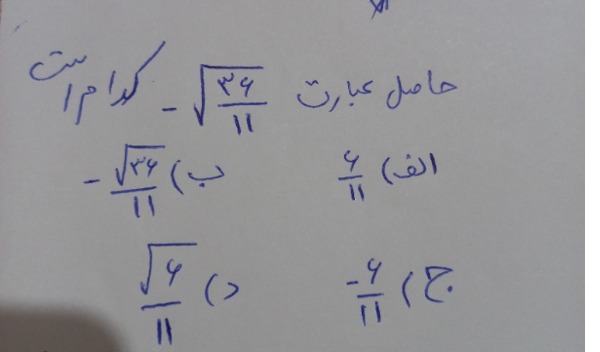 حاصل عبارت -√(۳۶/۱۱) کدام است
الف) ۶/۱۱ ب) -√۳۶/۱۱
ج) -۶/۱۱ د) √۶/۱۱